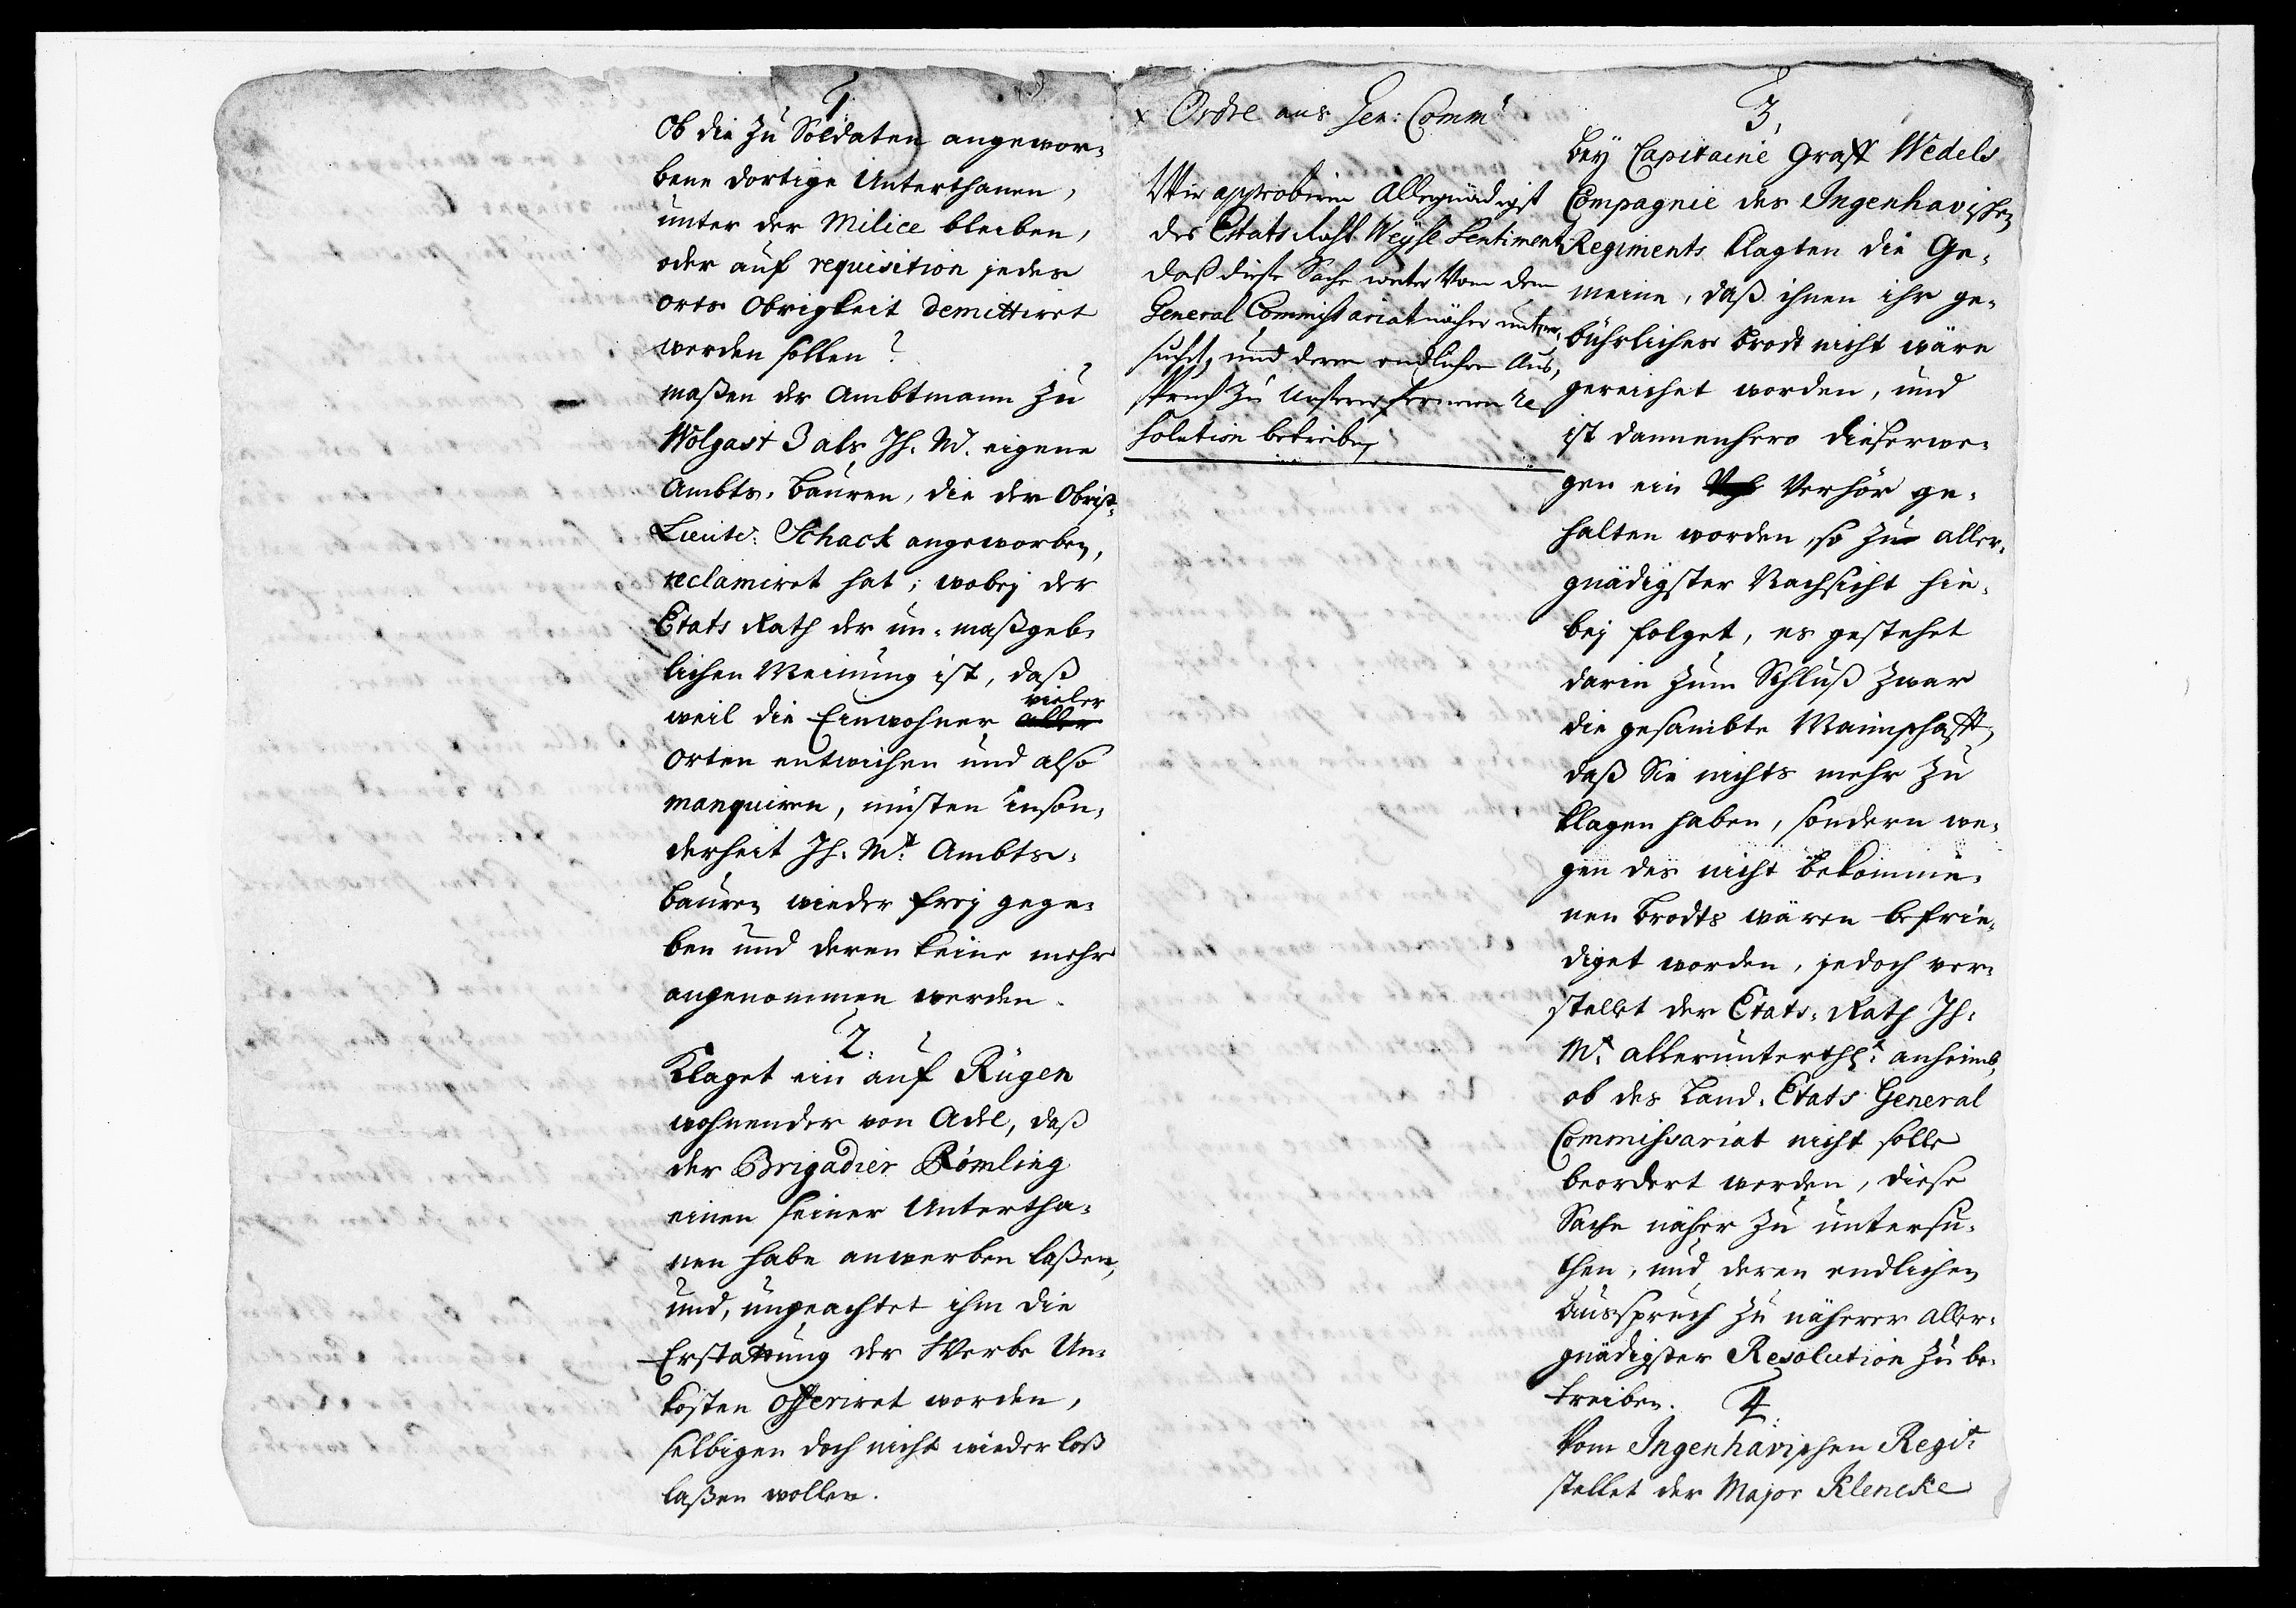 1.
Ob die zu Soldaten angewor-
bene dortige Unterthanen,
unter der Milice bleiben,
oder auf requisition jedes
orts Obrigkeit demittiret
werden sollen?
maßen der Ambtmann zu
Wolgast 3 als Jh. M. eigene
Ambts-Bauren, die der Obrist-
Lieut: Schack angeworben,
reclamiret hat; wobey der
Etats Rath der un-maßgeb-
lichen Meinung ist, daß
weil die Einwohner vieler
Orten entwichen und also
manquiren, müsten inson-
derheit Jh. Mt: Ambts-
bauren wieder frey gege-
ben und deren keine mehr
angenommen werden.
2.
Klaget ein auf Rügen
wohnender von Adel, daß
der Brigadier Römling
einen seiner Untertha-
nen habe anwerben laßen,
und, ungeachtet ihm die
Erstattung der Werbe Un-
kosten offeriret worden,
selbigen doch nicht wieder loß
laßen wollen.
x Ordre ans Gen: Comm:
Wir approbiren Allergnädigst
des Etats Raht Weyse Sentiment
daß diese Sache weiter Von dem
General Commissariat näher unter-
sucht, und deren endlichen Aus-
spruch zu Unserer ferneren Re
solution betreiben
3.
Bey Capitaine Graff Wedels
Compagnie des Ingenhavischen
Regiments klagten die Ge-
meine, daß ihnen ihr ge-
bührliches Brodt nicht wäre
gereichet worden, und
ist dannenhero dieserwe-
gen ein Verhör ge-
halten worden, so zu aller-
gnädigster Nachsicht hie-
bey folget, es gestehet
darin zum Schluß zwar
die gesambte Mannschafft,
daß Sie nichts mehr zu
klagen haben, sondern we-
gen des nicht bekomme-
nen Brodts wären befrie-
diget worden, jedoch ver-
stellet der Etats-Rath Jh.
Mt: allerunterthgt: anheimb,
ob des Land-Etats General
Commissariat nicht solle
beordert werden, diese
Sache näher zu untersu-
chen, und deren endlichen
Ausspruch zu näherer aller-
gnädigster Resolution zu be-
treiben.
4.
Vom Ingenhavischen Regit:
stellet der Major Klencke